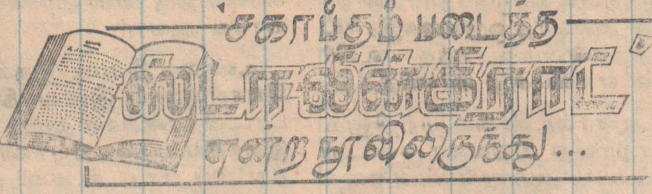 'சகாப்தம் படைத்த
ஸ்டாலின்கிராட்'
என்ற நூலிலிருந்து...